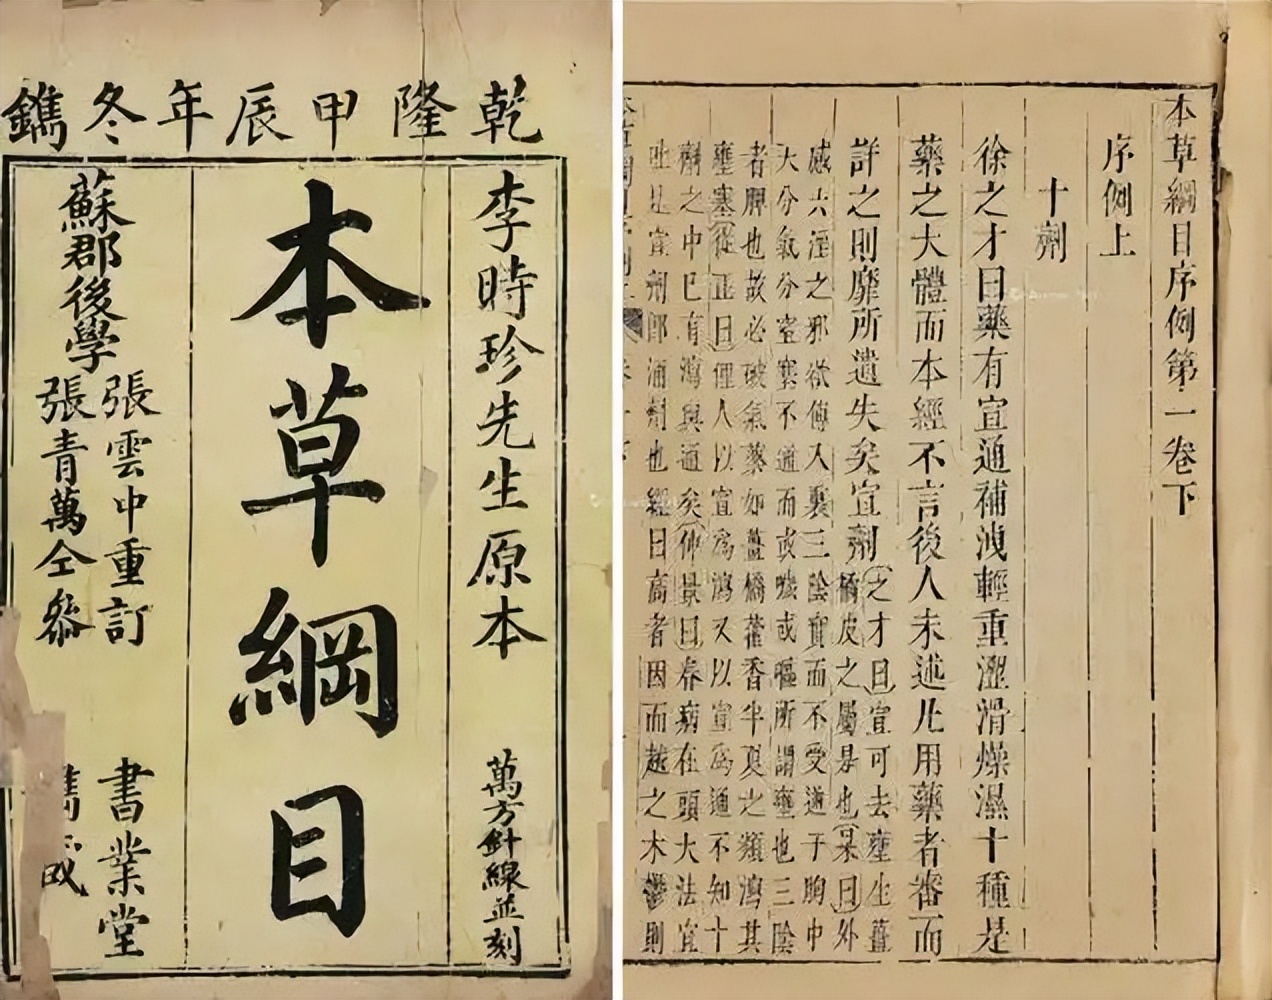 乾隆甲辰年冬鐫
李時珍先生原本
萬方針線並刻
本草綱目
蘇郡後學
張雲中重訂
張青萬仝參
書業堂
本草綱目序例第一卷下
序例上
十劑
徐之才曰藥有宣通補洩輕重澀滑燥濕十種是
藥之大體而本經不言後人未述凡用藥者審而
詳之則靡所遺失矣宣劑
之才曰宣可去壅生薑
橘皮之屬是也杲曰外
感六淫之邪欲傳入裏三陰實而不受逆于胸中
大分氣分窒塞不通而或噦或嘔所謂壅也三陰
者脾也故必破氣藥如薑橘藿香半夏之類瀉其
壅塞從正曰俚人以宣爲瀉又以宣爲通不知十
劑之中已有瀉與通矣仲景曰春病在頭大法宜
吐是宣劑即涌劑也經曰高者因而越之木鬱則